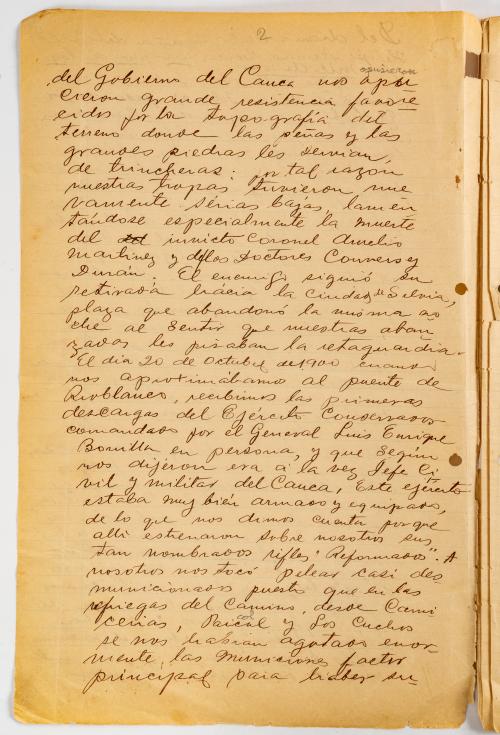 2
del Gobierno del Cauca nos opu-
cieron grande resistencia favore-
cidos por la topografía del
terreno donde las peñas y las
grandes piedras les servian,
de trincheras; por tal razon
nuestras tropas tuvieron nue
vamente serias bajas, lamen
tándose especialmente la muerte
del invicto Coronel Aurelio
Martinez y de los Doctores Convers y
Durán. El enemigo siguió su
retirada hacia la ciudad de Silvia,
plaza que abandonó la misma no
che al sentir que nuestras aban
zadas les pisaban la retaguardia.
El dia 20 de Octubre de 1900 cuando
nos aproximábamo al puente de
Rioblanco, recibimos las primeras
descargas del Ejército Conservador
comandados por el General Luis Enrique
Bonilla en persona, y que según
nos dijeron era a la vez Jefe Ci-
vil y militar del Cauca, Este ejército
estaba muy bién armado y equipado,
de lo que nos dimos cuenta porque
alli estrenaron sobre nosotros sus
tan nombrados rifles "Reformados". A
nosotros nos tocó pelear casi des
municionados puesto que en las
refriegas del Camino, desde Carni
cerias, Paicol y Los Cuchos
se nos habian agotado enor-
mente, las municiones factor
principal para haber su-